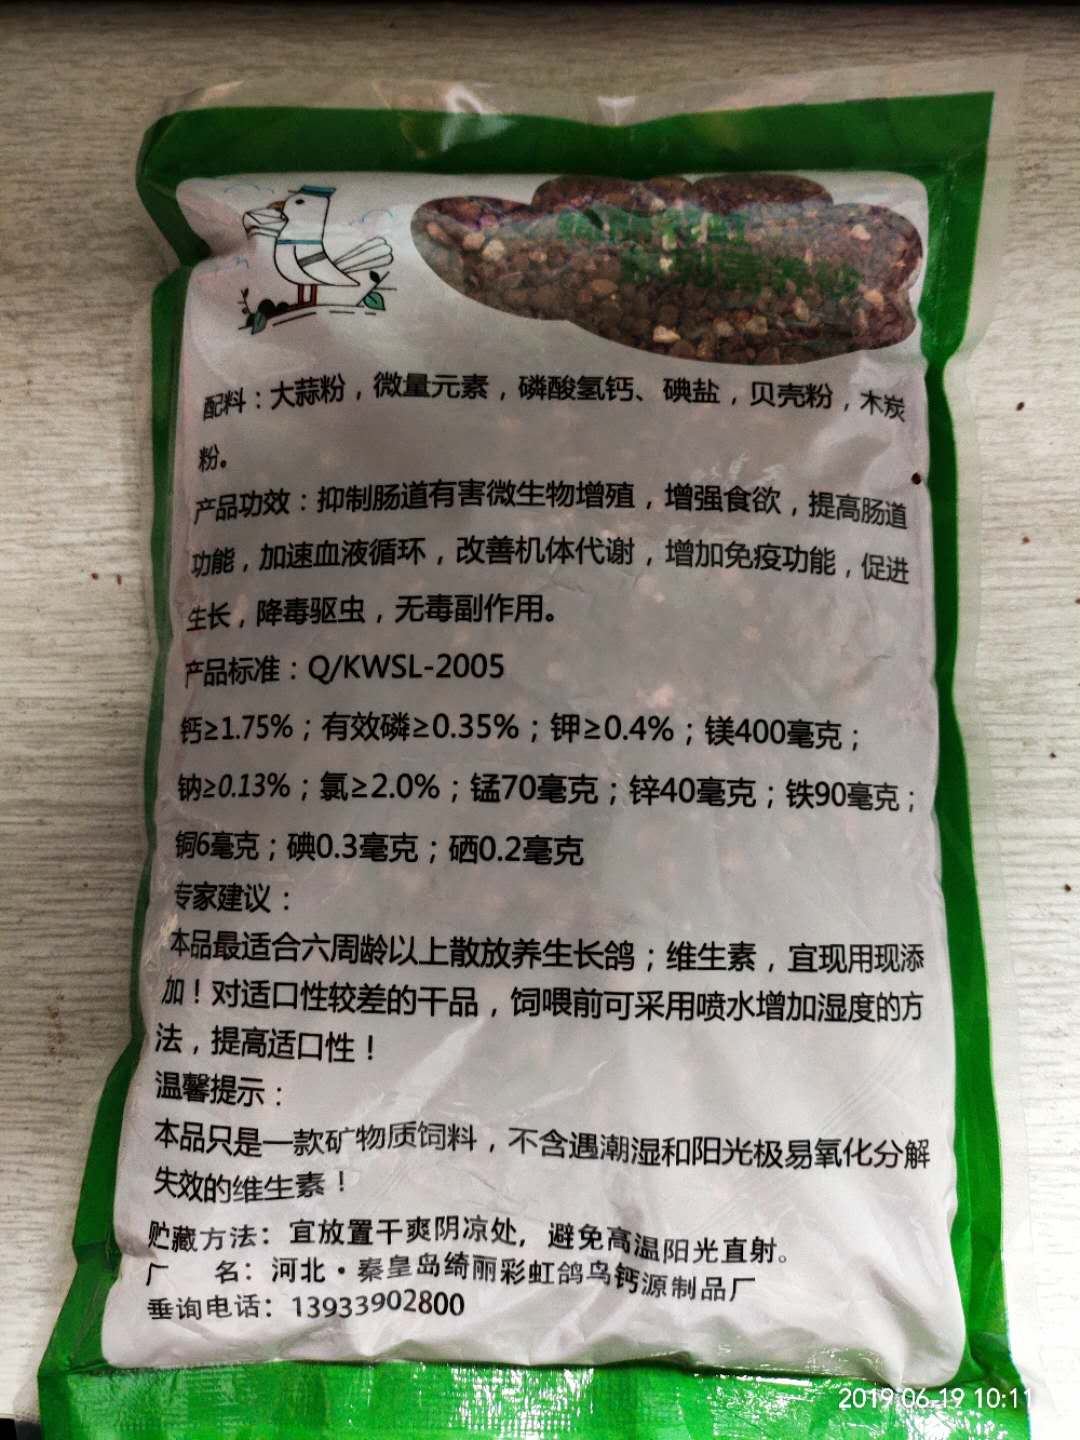 配料：大蒜粉，微量元素，磷酸氢钙、碘盐，贝壳粉，木炭
粉。
产品功效：抑制肠道有害微生物增殖，增强食欲，提高肠道
功能，加速血液循环，改善机体代谢，增加免疫功能，促进
生长，降毒驱虫，无毒副作用。
产品标准：Q/KWSL-2005
钙≥1.75%；有效磷≥0.35%；钾≥0.4%；镁400毫克；
钠≥0.13%；氯≥2.0%；锰70毫克；锌40毫克；铁90毫克；
铜6毫克；碘0.3毫克；硒0.2毫克
专家建议：
本品最适合六周龄以上散放养生长鸽；维生素，宜现用现添
加！对适口性较差的干品，饲喂前可采用喷水增加湿度的方
法，提高适口性！
温馨提示：
本品只是一款矿物质饲料，不含遇潮湿和阳光极易氧化分解
失效的维生素！
贮藏方法：宜放置干爽阴凉处，避免高温阳光直射。
厂 名：河北·秦皇岛绮丽彩虹鸽鸟钙源制品厂
垂询电话：13933902800
2019.06.19 10:11